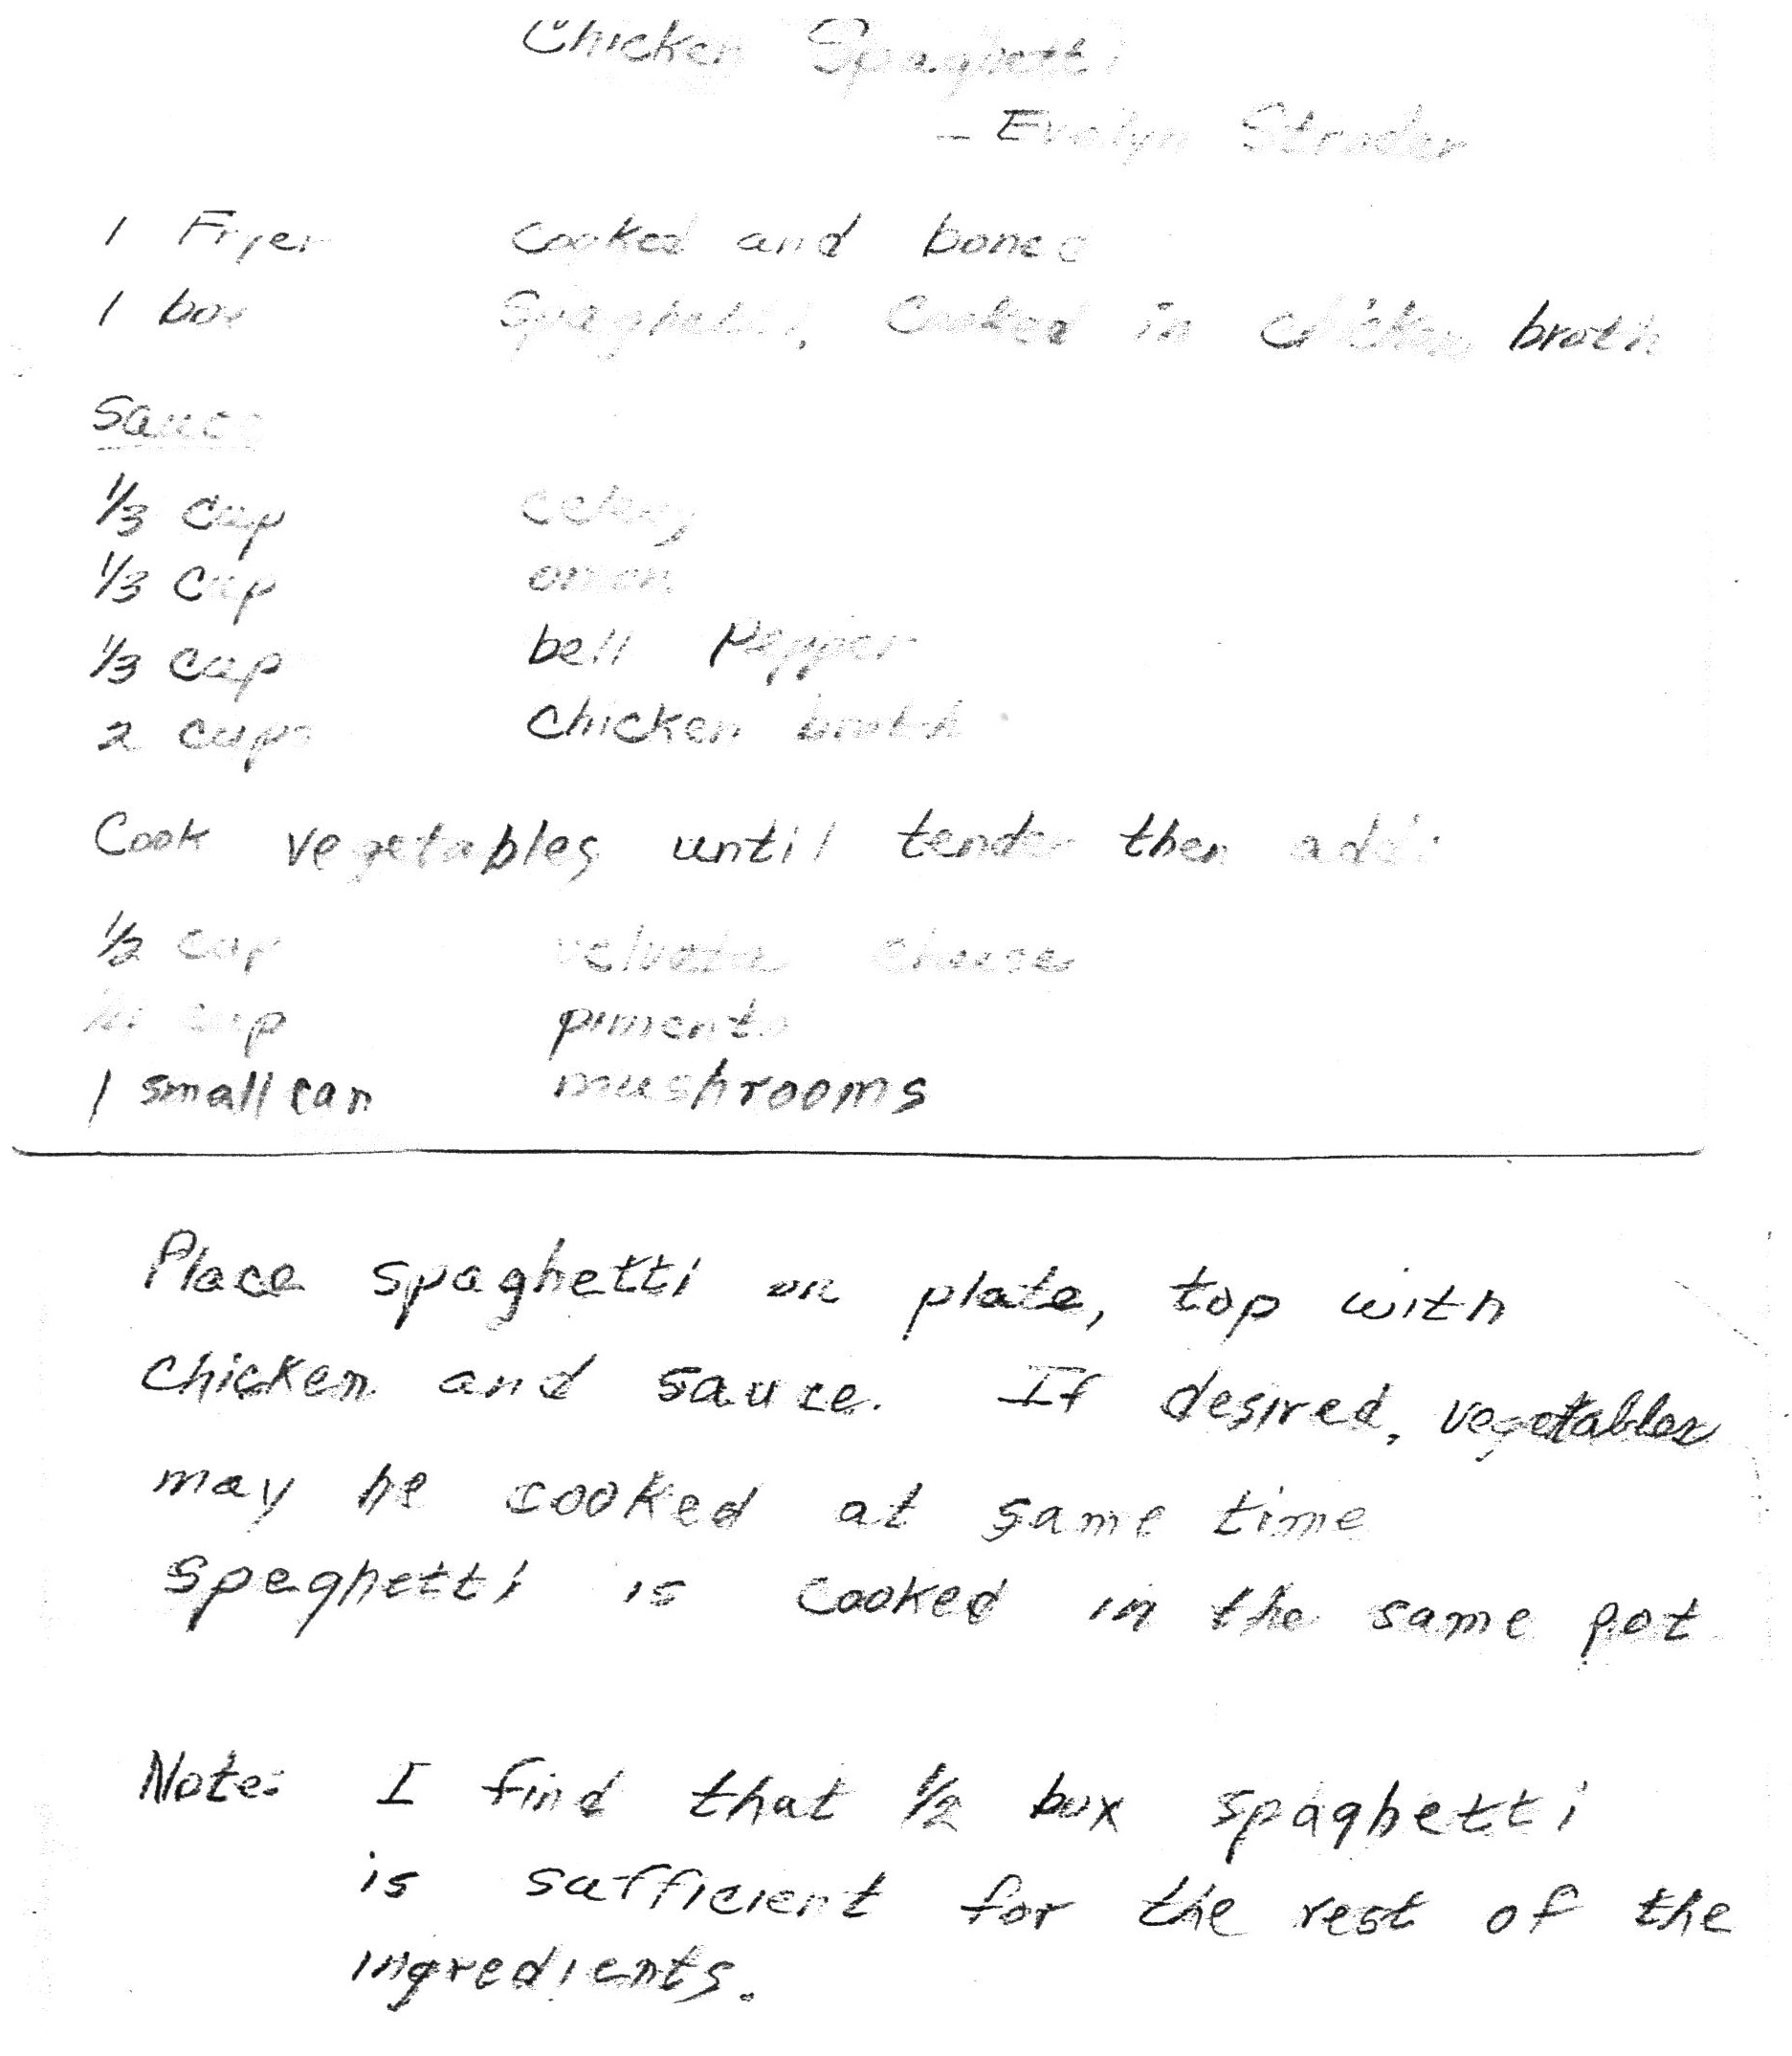 Chicken Spaghetti
- Evelyn Stroder
1 Fryer cooked and boned
1 box Spaghetti, Cooked in chicken broth
Sauce
1/3 cup celery
1/3 cup onion
1/3 cup bell Pepper
2 cups chicken broth
Cook vegetables until tender then add:
1/2 cup velveeta cheese
cup pimento
1 small can mushrooms
Place spaghetti on plate, top with
chicken and sauce. If desired, vegetables
may be cooked at same time
speghetti is cooked in the same pot
Note: I find that 1/2 box spaghetti
is sufficient for the rest of the
ingredients.